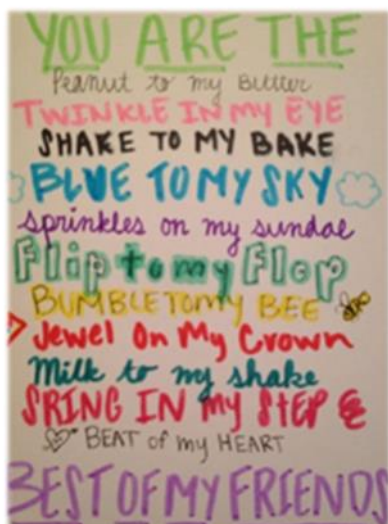 YOU ARE THE
Peanut to my Butter
TWINKLE IN my EYE
SHAKE TO MY BAKE
BLUE TO MY SKY
sprinkles on my sundae
Flip to my Flop
BUMBLE TO MY BEE
Jewel On My Crown
Milk to my shake
SRING IN my STEP
BEAT of my HEART
BEST OF MY FRIENDS